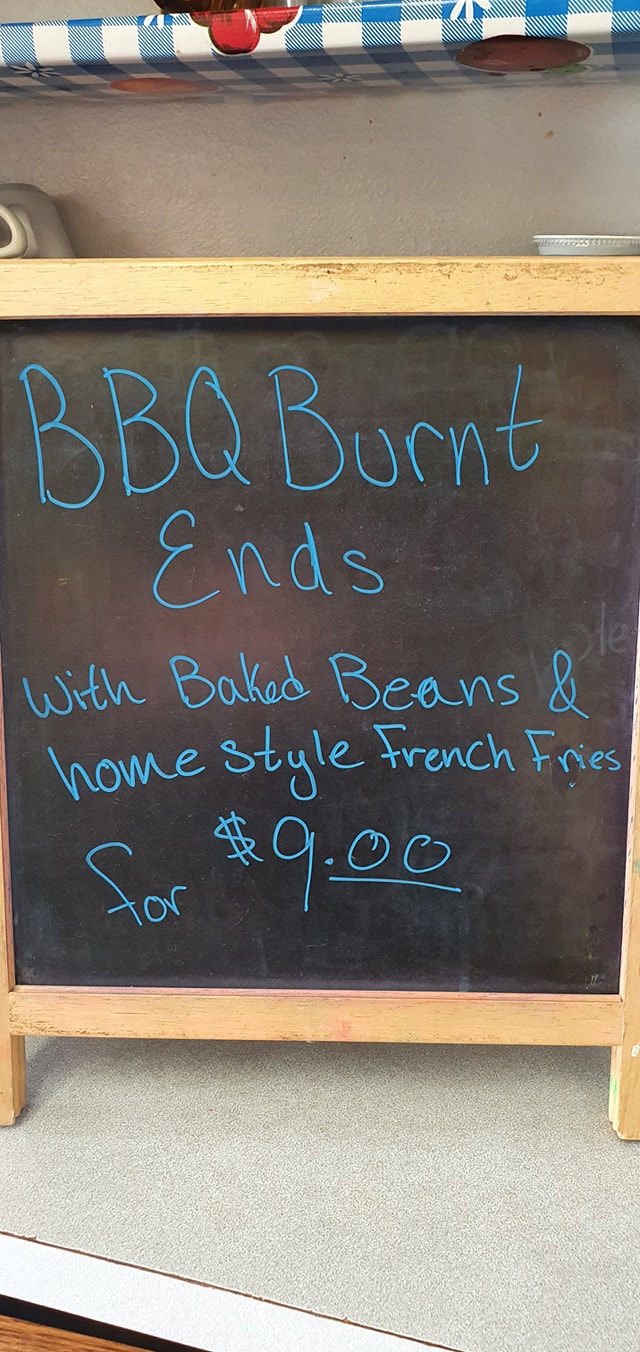 BBQ Burnt
Ends
With Baked Beans &
home style French Fries
for $9.00